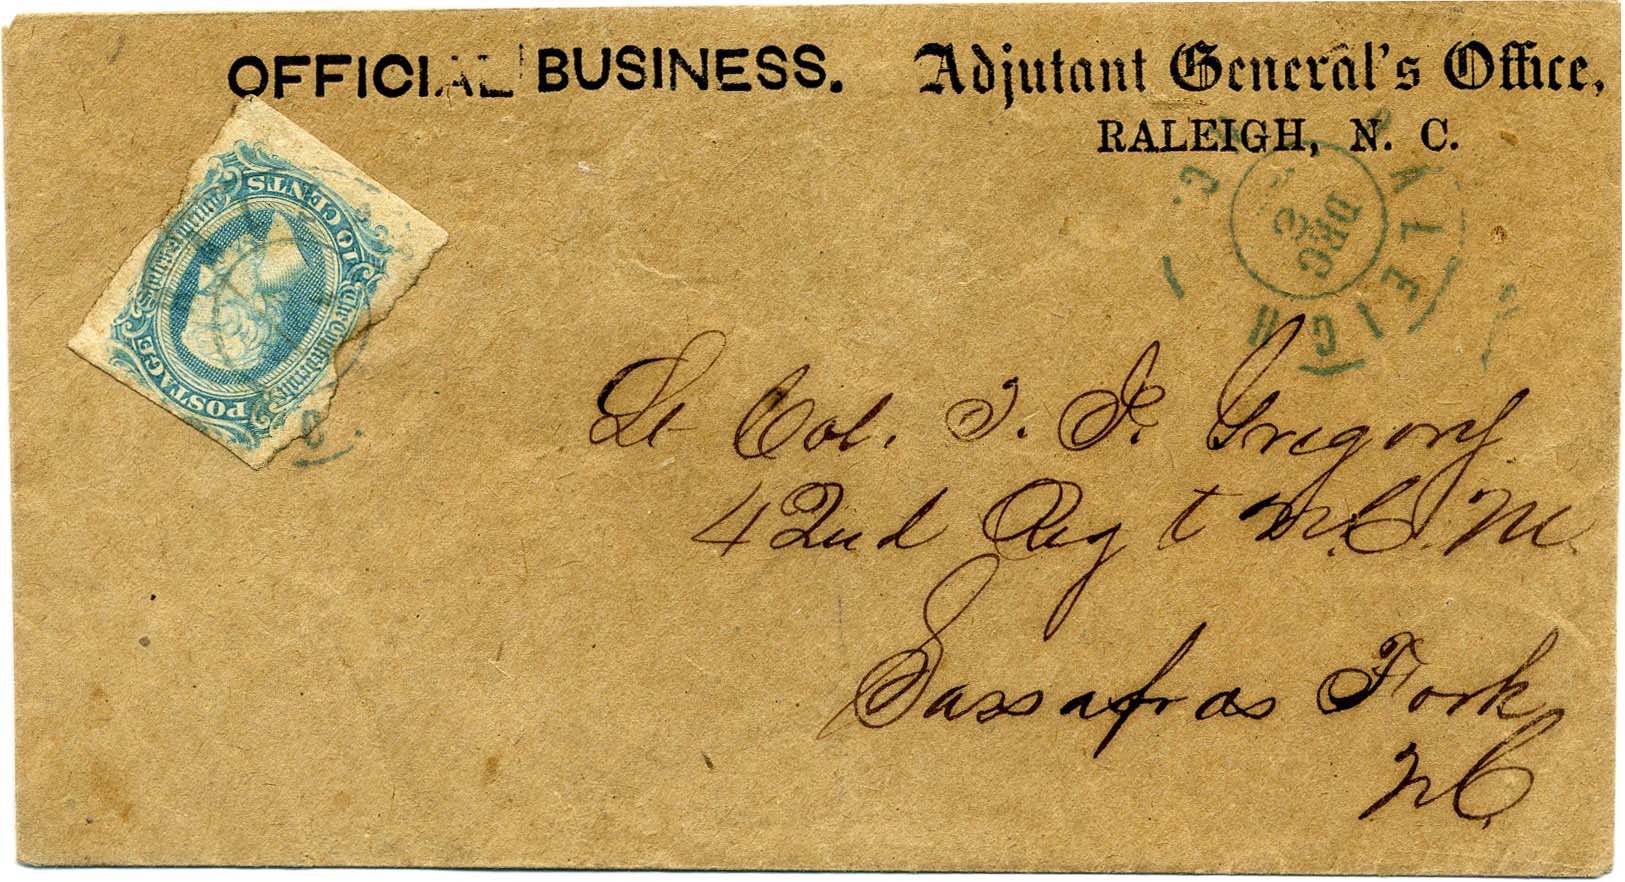 OFFICIAL BUSINESS.
Adjutant General's Office,
RALEIGH, N. C.
RALEIGH
C.
DEC
10 CENTS
The Confederate States
POSTAGE
Lt Col. T. F. Gregory
42nd Regt N.C.M.
Sassafras Fork
NC.